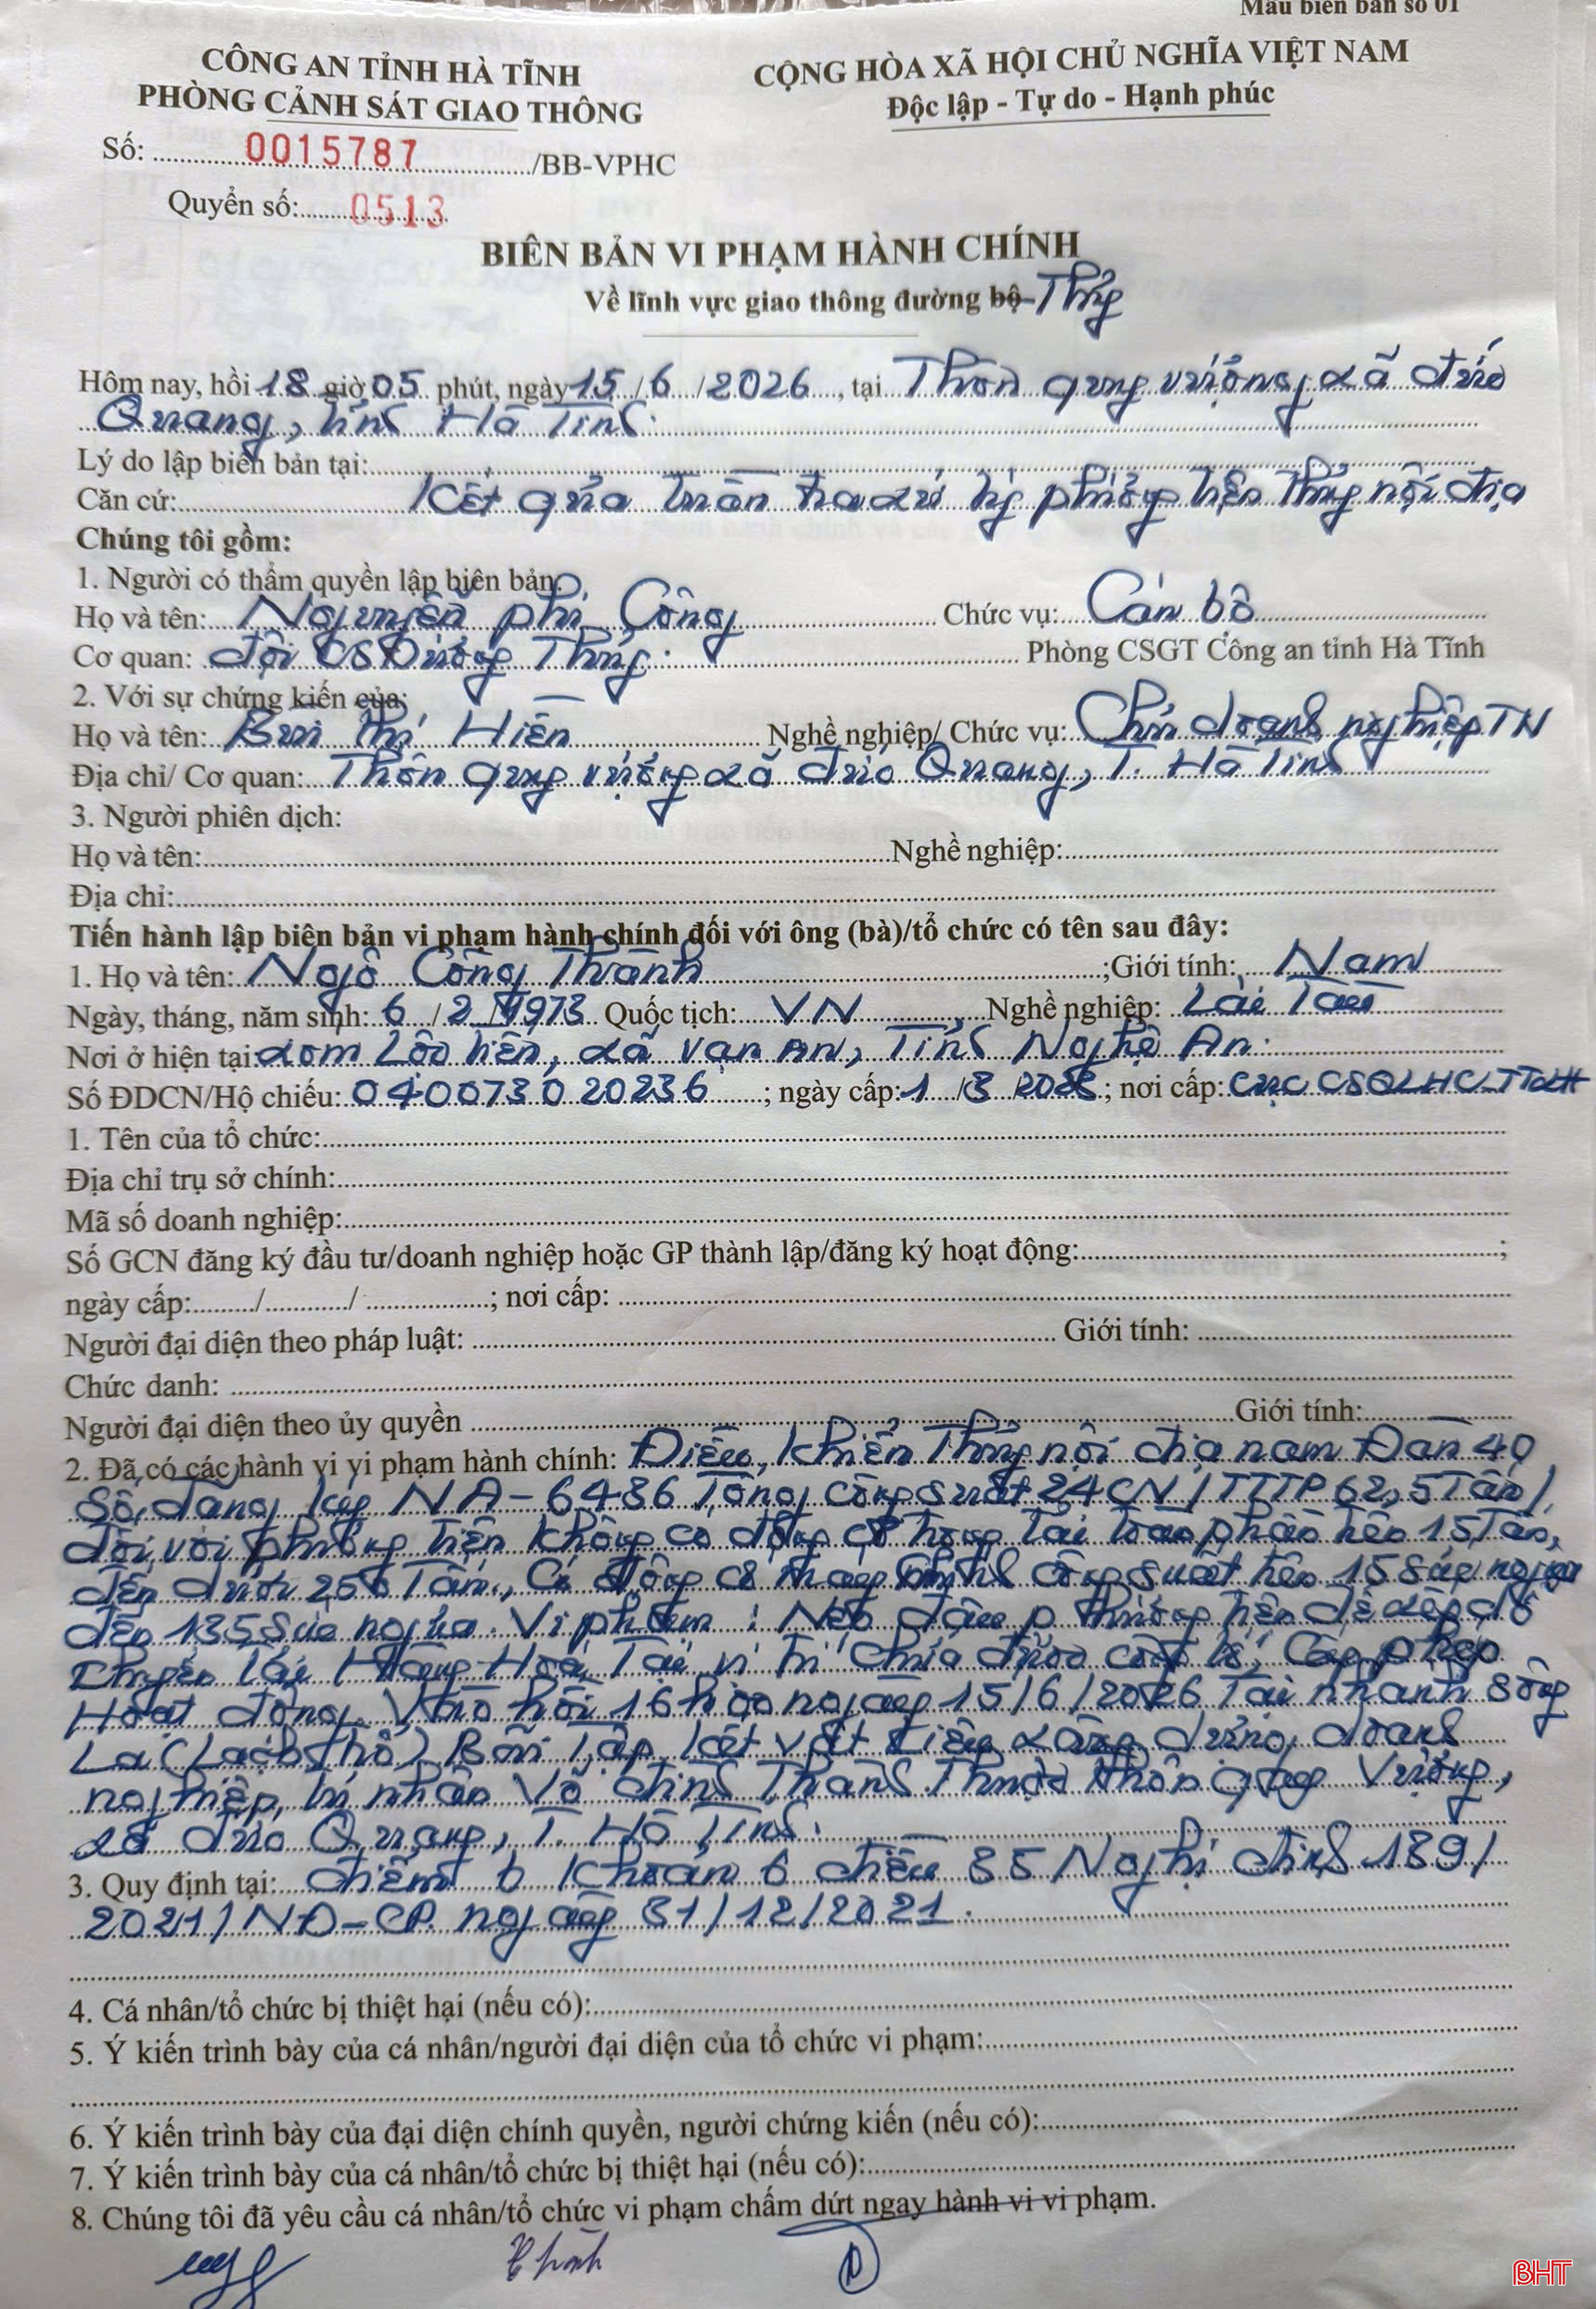 Mẫu biên bản số 01
CÔNG AN TỈNH HÀ TĨNH
PHÒNG CẢNH SÁT GIAO THÔNG
CỘNG HÒA XÃ HỘI CHỦ NGHĨA VIỆT NAM
Độc lập - Tự do - Hạnh phúc
Số: 0015787 /BB-VPHC
Quyển số: 0513
BIÊN BẢN VI PHẠM HÀNH CHÍNH
Về lĩnh vực giao thông đường bộ Thủy
Hôm nay, hồi 18 giờ 05 phút, ngày 15/6/2026, tại Thôn Quy Vượng xã Đức
Quang, tỉnh Hà Tĩnh.
Lý do lập biên bản tại:
Căn cứ: Kết quả tuần tra xử lý phương tiện thủy nội địa
Chúng tôi gồm:
1. Người có thẩm quyền lập biên bản:
Họ và tên: Nguyễn Phi Công Chức vụ: Cán bộ
Cơ quan: Đội CS Đường Thủy. Phòng CSGT Công an tỉnh Hà Tĩnh
2. Với sự chứng kiến của:
Họ và tên: Bùi Thị Hiền Nghề nghiệp/ Chức vụ: Chủ doanh nghiệp TN
Địa chỉ/ Cơ quan: Thôn Quy Vượng xã Đức Quang, T. Hà Tĩnh
3. Người phiên dịch:
Họ và tên: Nghề nghiệp:
Địa chỉ:
Tiến hành lập biên bản vi phạm hành chính đối với ông (bà)/tổ chức có tên sau đây:
1. Họ và tên: Ngô Công Thành ;Giới tính: Nam
Ngày, tháng, năm sinh: 6/2/1973 Quốc tịch: VN Nghề nghiệp: Lái Tàu
Nơi ở hiện tại: xóm Lộc Tiến, xã Vạn An, Tỉnh Nghệ An.
Số ĐDCN/Hộ chiếu: 040073020236; ngày cấp: 1/3 ; nơi cấp: Cục CSQLHC TTXH
1. Tên của tổ chức:
Địa chỉ trụ sở chính:
Mã số doanh nghiệp:
Số GCN đăng ký đầu tư/doanh nghiệp hoặc GP thành lập/đăng ký hoạt động: ;
ngày cấp: / / ; nơi cấp:
Người đại diện theo pháp luật: Giới tính:
Chức danh:
Người đại diện theo ủy quyền Giới tính:
2. Đã có các hành vi vi phạm hành chính: Điều khiển Thủy nội địa Nam Đàn 40
Số đăng ký NA-6486 Tổng công suất 24CN/TTTP 62,5 Tấn/
đối với phương tiện không có động cơ trọng tải toàn phần trên 15 Tấn,
đến dưới 250 Tấn, Có động cơ máy chính công suất trên 15 sức ngựa
đến 135 sức ngựa. Vi phạm: Neo đậu phương tiện để xếp dỡ
chuyển tải Hàng Hóa Tại vị trí chưa được công bố, Cấp phép
Hoạt động. Vào hồi 16h 00 ngày 15/6/2026 Tại nhánh Sông
La Bãi Tập kết vật liệu xây dựng doanh
nghiệp tư nhân Võ Đình Thành Thuộc thôn Quy Vượng,
xã Đức Quang, T. Hà Tĩnh.
3. Quy định tại: điểm b khoản 6 điều 35 Nghị định 139/
2021/NĐ-CP. ngày 31/12/2021.
4. Cá nhân/tổ chức bị thiệt hại (nếu có):
5. Ý kiến trình bày của cá nhân/người đại diện của tổ chức vi phạm:
6. Ý kiến trình bày của đại diện chính quyền, người chứng kiến (nếu có):
7. Ý kiến trình bày của cá nhân/tổ chức bị thiệt hại (nếu có):
8. Chúng tôi đã yêu cầu cá nhân/tổ chức vi phạm chấm dứt ngay hành vi vi phạm.
Thành
BHT